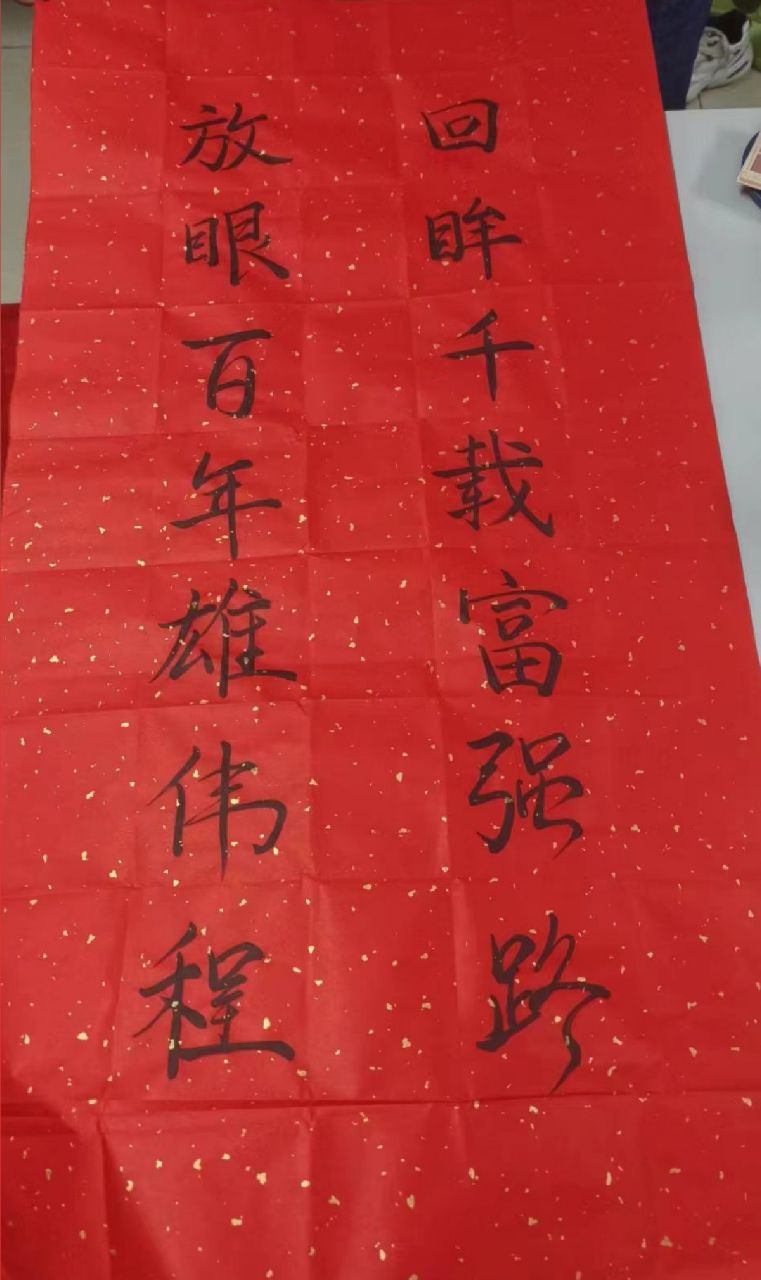 回眸千载富强路
放眼百年雄伟程